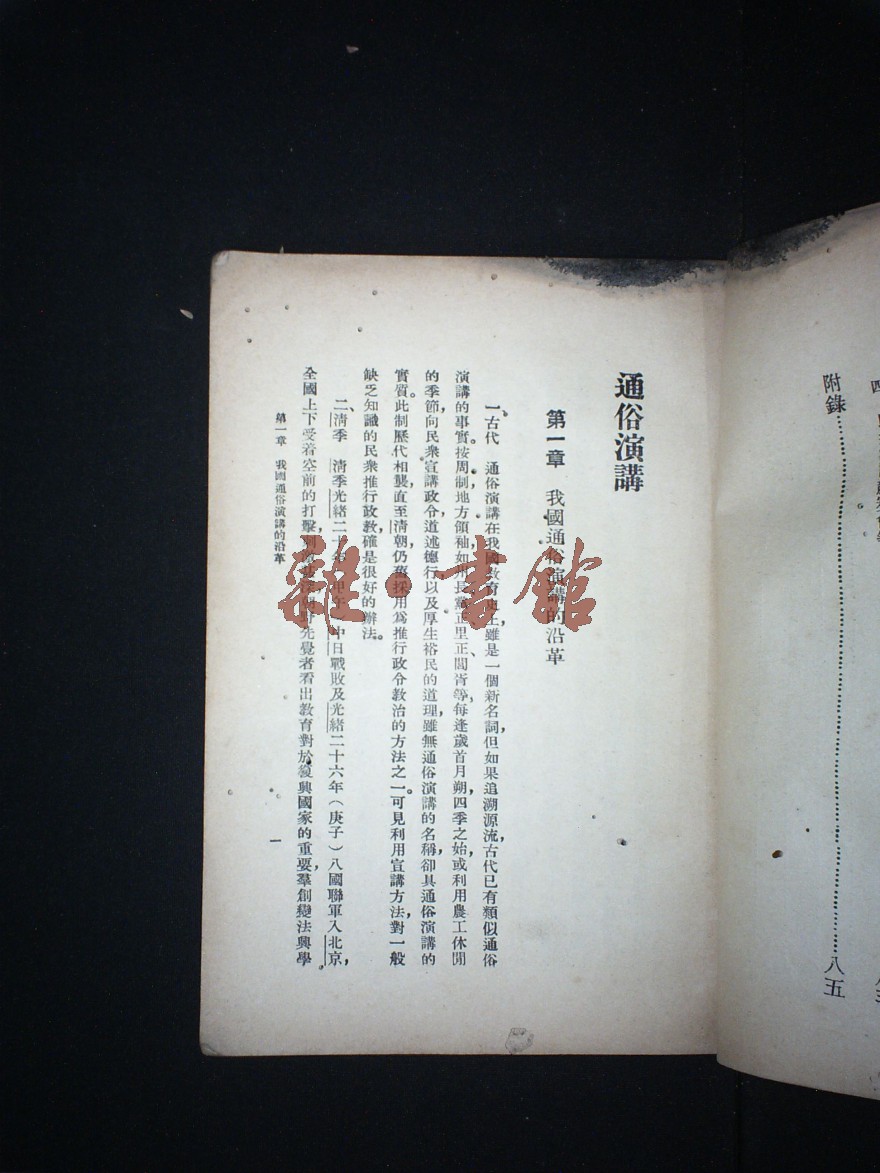 附錄……八五
通俗演講
第一章　我國通俗演講的沿革
一、古代　通俗演講在我國教育史上，雖是一個新名詞，但如果追溯源流，古代已有類似通俗
演講的事實。按周制，地方領袖如州長、黨正、里正、閭胥等，每逢歲首月朔，四季之始，或利用農工休閒
的季節，向民衆宣講政令，道述德行，以及厚生裕民的道理，雖無通俗演講的名稱，卻具通俗演講的
實質。此制歷代相襲，直至清朝，仍舊採用爲推行政令教治的方法之一。可見利用宣講方法，對一般
缺乏知識的民衆推行政教，確是很好的辦法。
二、清季　清季光緒二十年（甲午）中日戰敗，及光緒二十六年（庚子）八國聯軍入北京，
全國上下受着空前的打擊，朝野先覺者看出教育對於復興國家的重要，羣創變法興學
第一章　我國通俗演講的沿革
一
雜·書館